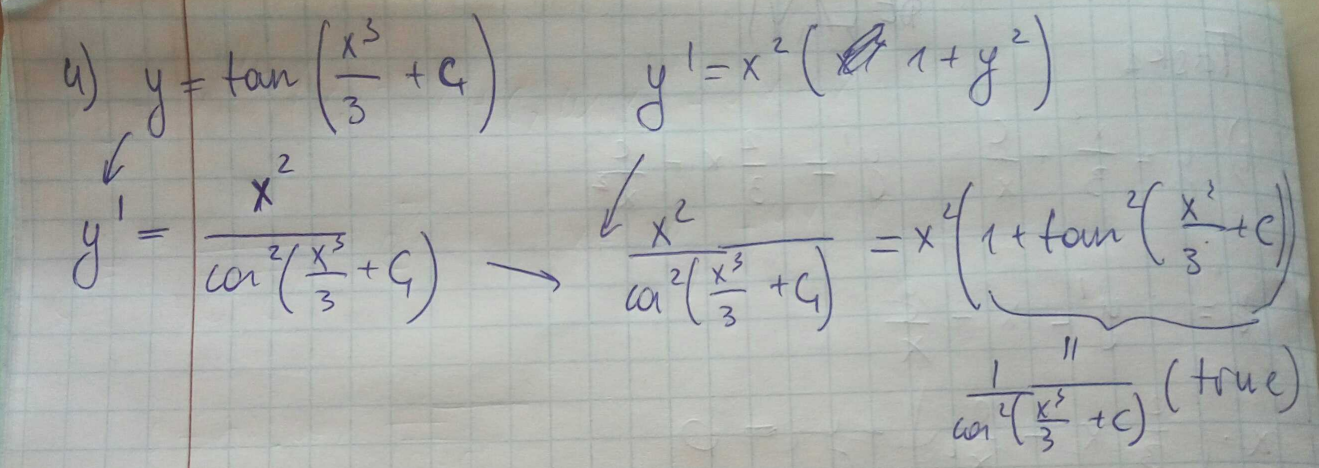 4) y = tan(x³/3 + C₁)    y' = x²(1 + y²)
y' = x²/cos²(x³/3 + C₁) → x²/cos²(x³/3 + C₁) = x²(1 + tan²(x³/3 + C))
|| 1/cos²(x³/3 + C) (true)